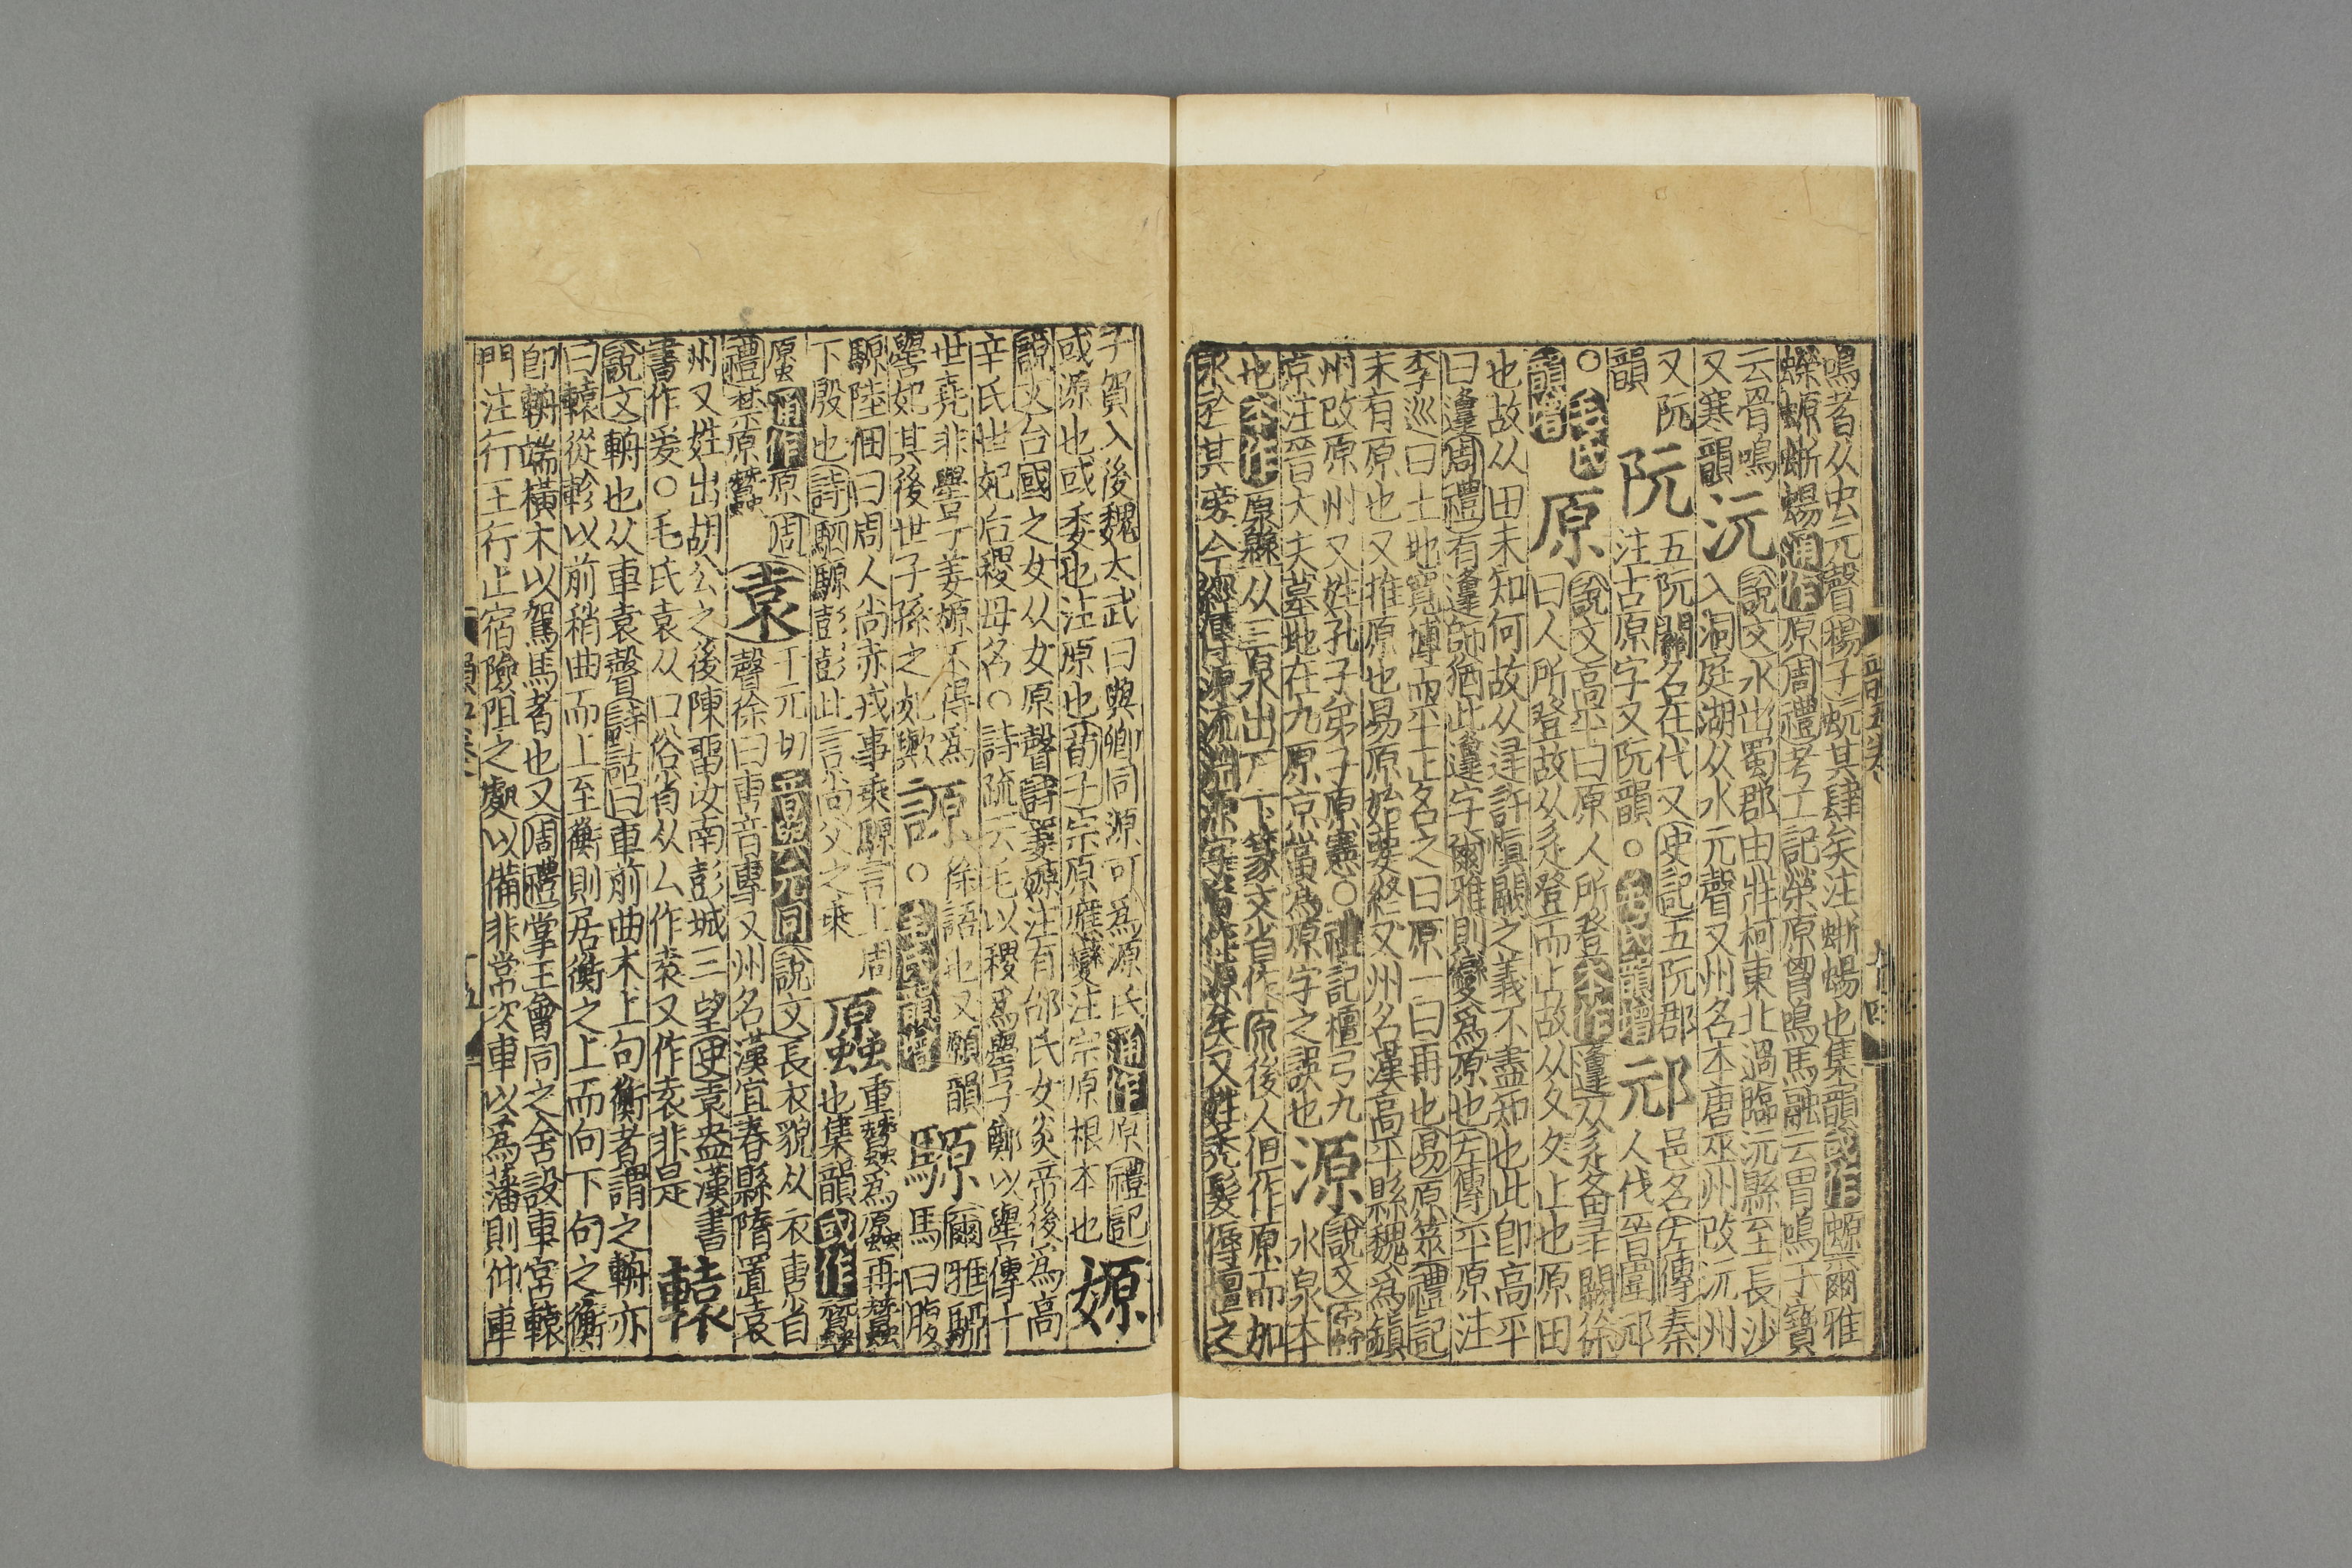 鳴者从虫元聲楊子蚖其肆矣注蜥蜴也集韻或作螈爾雅
蠑螈蜥蜴通作原周禮考工記榮原胷鳴馬融云胃鳴干寶
云骨鳴
又寒韻
沅
說文水出蜀郡由牂柯東北過臨沅縣至長沙
入洞庭湖从水元聲又州名本唐巫州改沅州
又阮
韻
阮
五阮關名在代又史記五阮郡
注古原字又阮韻○毛氏韻增
邧
邑名左傳秦
人伐晉圍邧
○毛氏
韻增
原
說文高平曰原人所登本作邍从辵备彔闕徐
曰人所登故从辵登而止故从夂夂止也原田
也故从田未知何故从彔許愼闕之義不盡知也此卽高平
曰邍周禮有邍師猶此邍字爾雅則變爲原也左傳平原注
李巡曰土地寬博而平正名之曰原一曰再也易原筮禮記
末有原也又推原也易原始要終又州名漢高平縣魏爲鎮
州改原州又姓孔子弟子原憲○禮記檀弓九
京注晉大夫墓地在九原京當爲原字之誤也
源
說文
水泉本
也本作原𠫐从三泉出厂下篆文省作原後人但作原而加
水於其旁今經傳源流淵源字皆作源矣又姓禿髮傉檀之
子賀入後魏太武曰與卿同源可爲源氏通作原禮記
或源也或委也注原也荀子宗原應變注宗原根本也
嫄
說文台國之女从女原聲詩姜嫄注有邰氏女炎帝後爲高
辛氏世妃后稷母名○詩疏云毛以稷爲嚳子鄭以嚳傳十
世堯非嚳子姜嫄不得爲
嚳妃其後世子孫之妃歟
謜
徐語也又願韻
○毛氏韻增
騵
爾雅駵
馬白腹
騵陸佃曰周人尚赤戎事乘騵言上周
下殷也詩駟騵彭彭此言尚父之乘
螈
重蠶爲原再蠶
也集韻或作
通作原周
禮禁原蠶
袁
于元切音與元同說文長衣貌从衣叀省
聲徐曰叀音專又州名漢宜春縣隋置袁
州又姓出胡公之後陳留汝南彭城三望史袁盎漢書
書作爰○毛氏袁从口俗省从厶作袁又作袁非是
轅
說文輈也从車袁聲詩詁曰車前曲木上句衡者謂之輈亦
曰轅從軫以前稍曲而上至衡則居衡之上而向下句之衡
卽輈端橫木以駕馬者也又周禮掌王會同之舍設車宮轅
門注行王行止宿險阻之處以備非常次車以爲藩則仰車